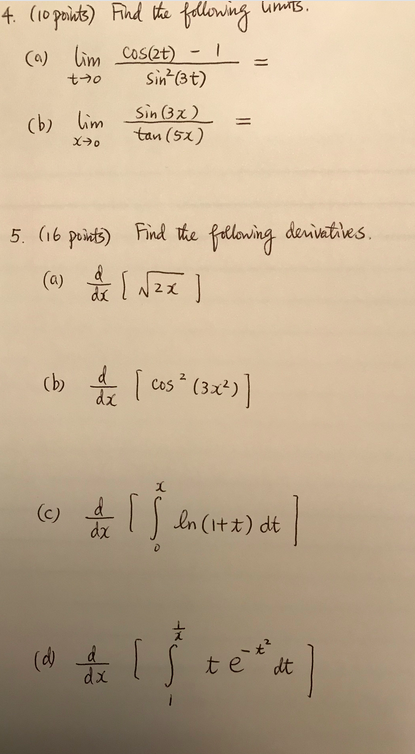 4. (10 points) Find the following limits.
(a) lim t→0 (cos(2t) - 1) / (sin²(3t)) =
(b) lim x→0 (sin(3x)) / (tan(5x)) =
5. (16 points) Find the following derivatives.
(a) d/dx [ √2x ]
(b) d/dx [ cos² (3x²) ]
(c) d/dx [ ∫₀ˣ ln(1+t) dt ]
(d) d/dx [ ∫₁^(1/x) t e^(-t²) dt ]